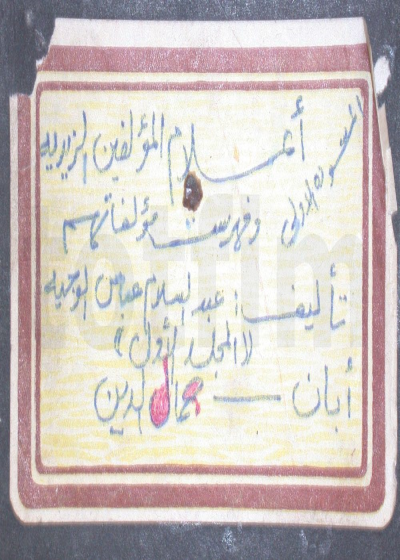 أعلام المؤلفين الزيدية
وفهرست مؤلفاتهم
المسودة الأولى
تأليف: عبد السلام عباس الوجيه
((المجلد الأول))
أبان — جمال الدين